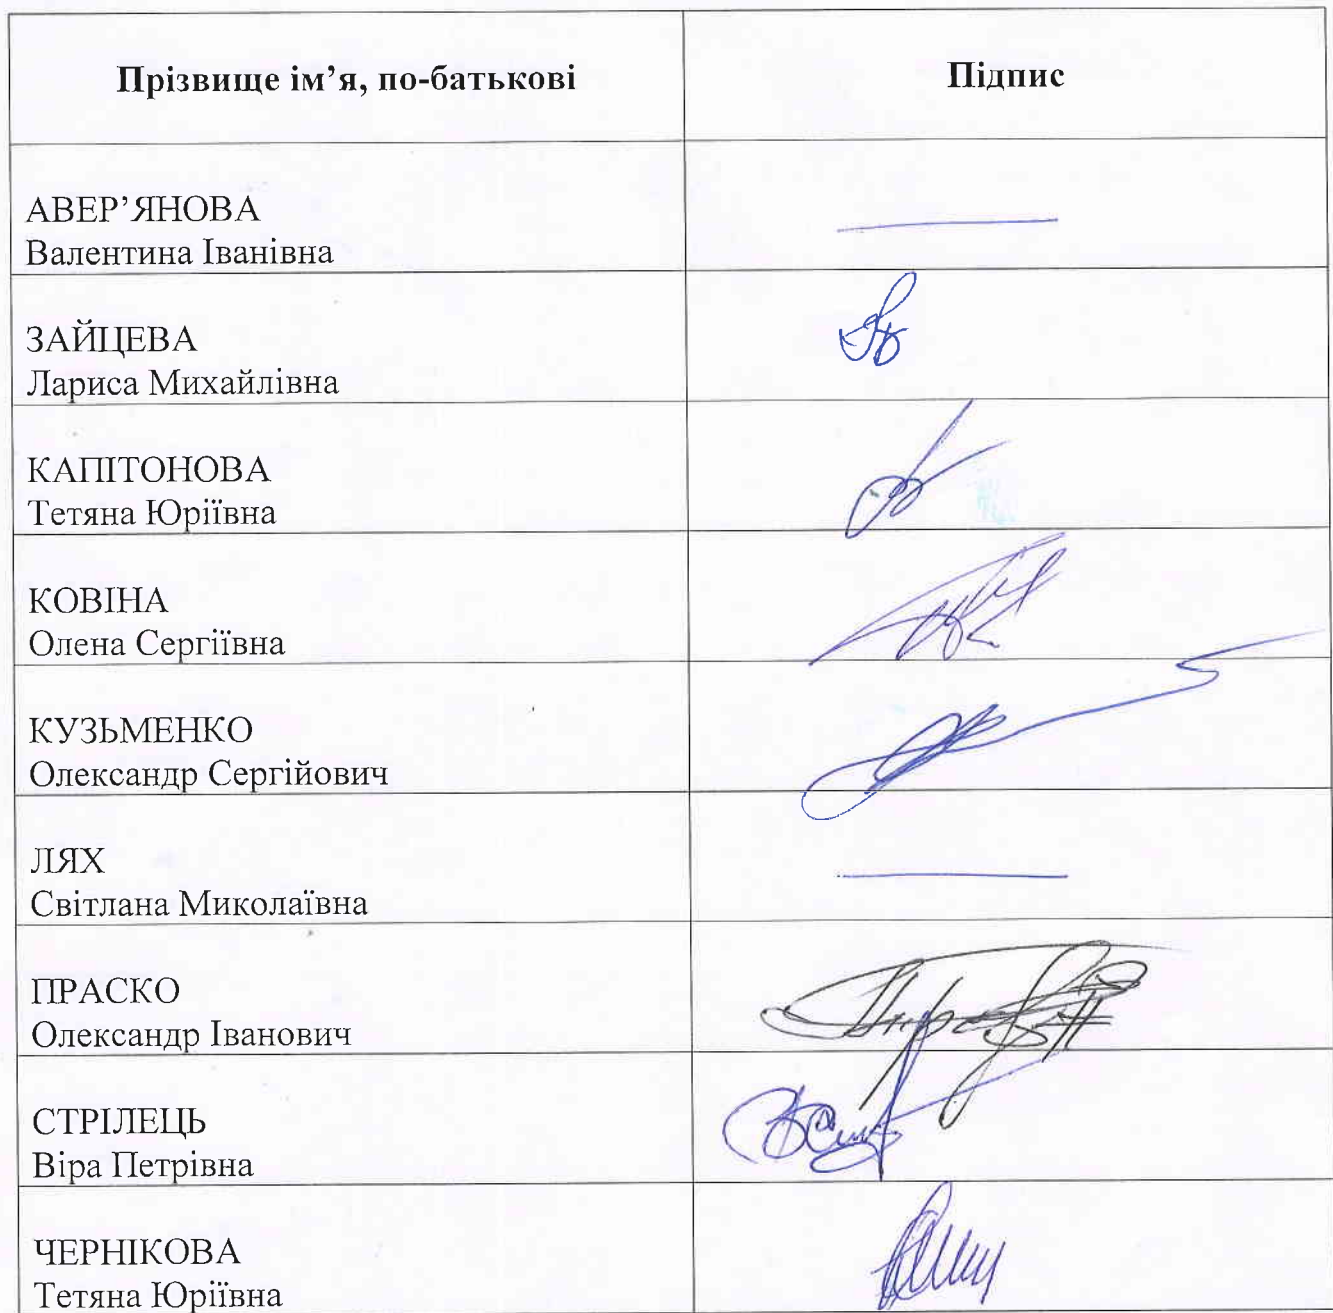 Прізвище ім’я, по-батькові
Підпис
АВЕР’ЯНОВА
Валентина Іванівна
ЗАЙЦЕВА
Лариса Михайлівна
КАПІТОНОВА
Тетяна Юріївна
КОВІНА
Олена Сергіївна
КУЗЬМЕНКО
Олександр Сергійович
ЛЯХ
Світлана Миколаївна
ПРАСКО
Олександр Іванович
СТРІЛЕЦЬ
Віра Петрівна
ЧЕРНІКОВА
Тетяна Юріївна